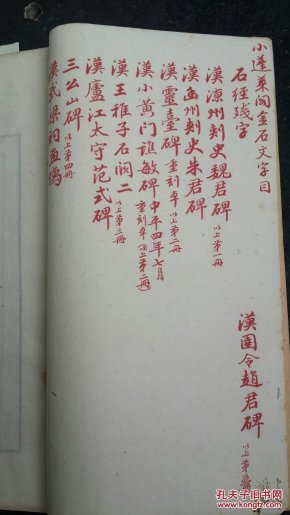 小蓬萊閣金石文字目
石經殘字
漢涼州刺史魏君碑 以上第一冊
漢幽州刺史朱君碑
漢靈臺碑 重刻本 以上第二冊
漢小黃门譙敏碑 中平四年七月 重刻本
漢王稚子石闕二
漢廬江太守范式碑 以上第三冊
三公山碑 以上第四冊
漢武梁祠画像
漢圉令趙君碑
孔夫子旧书网